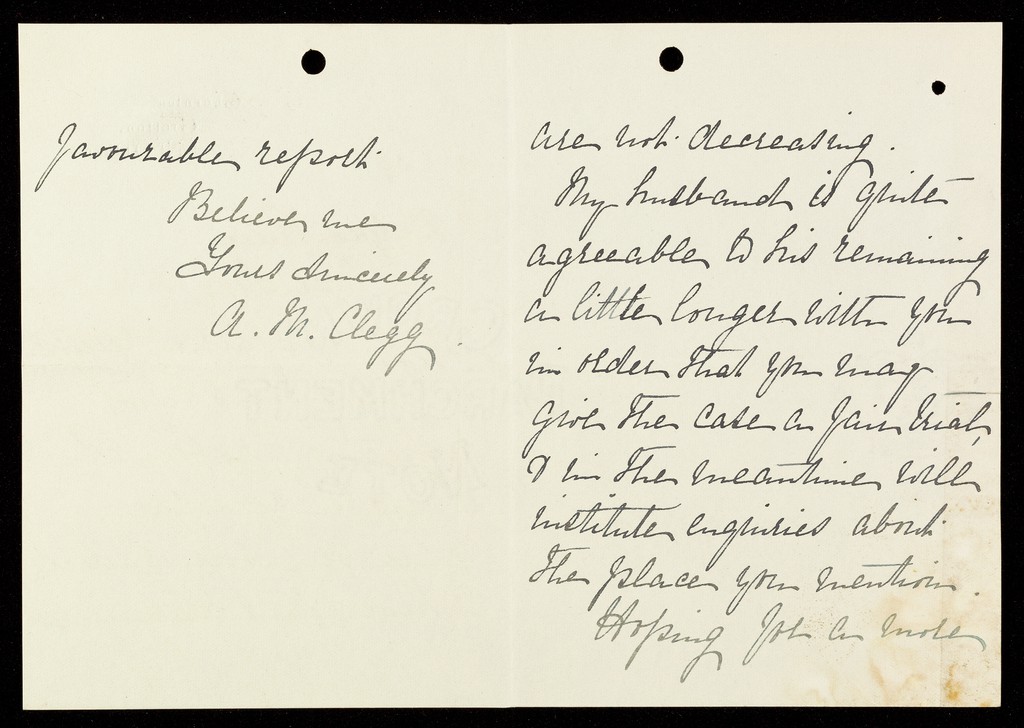 are not decreasing.
My husband is quite
agreeable to his remaining
a little longer with you
in order that you may
give the case a fair trial,
& in the meantime will
institute enquiries about
the place you mention.
Hoping for a more
favourable report
Believe me
Yours sincerely
A. M. Clegg.